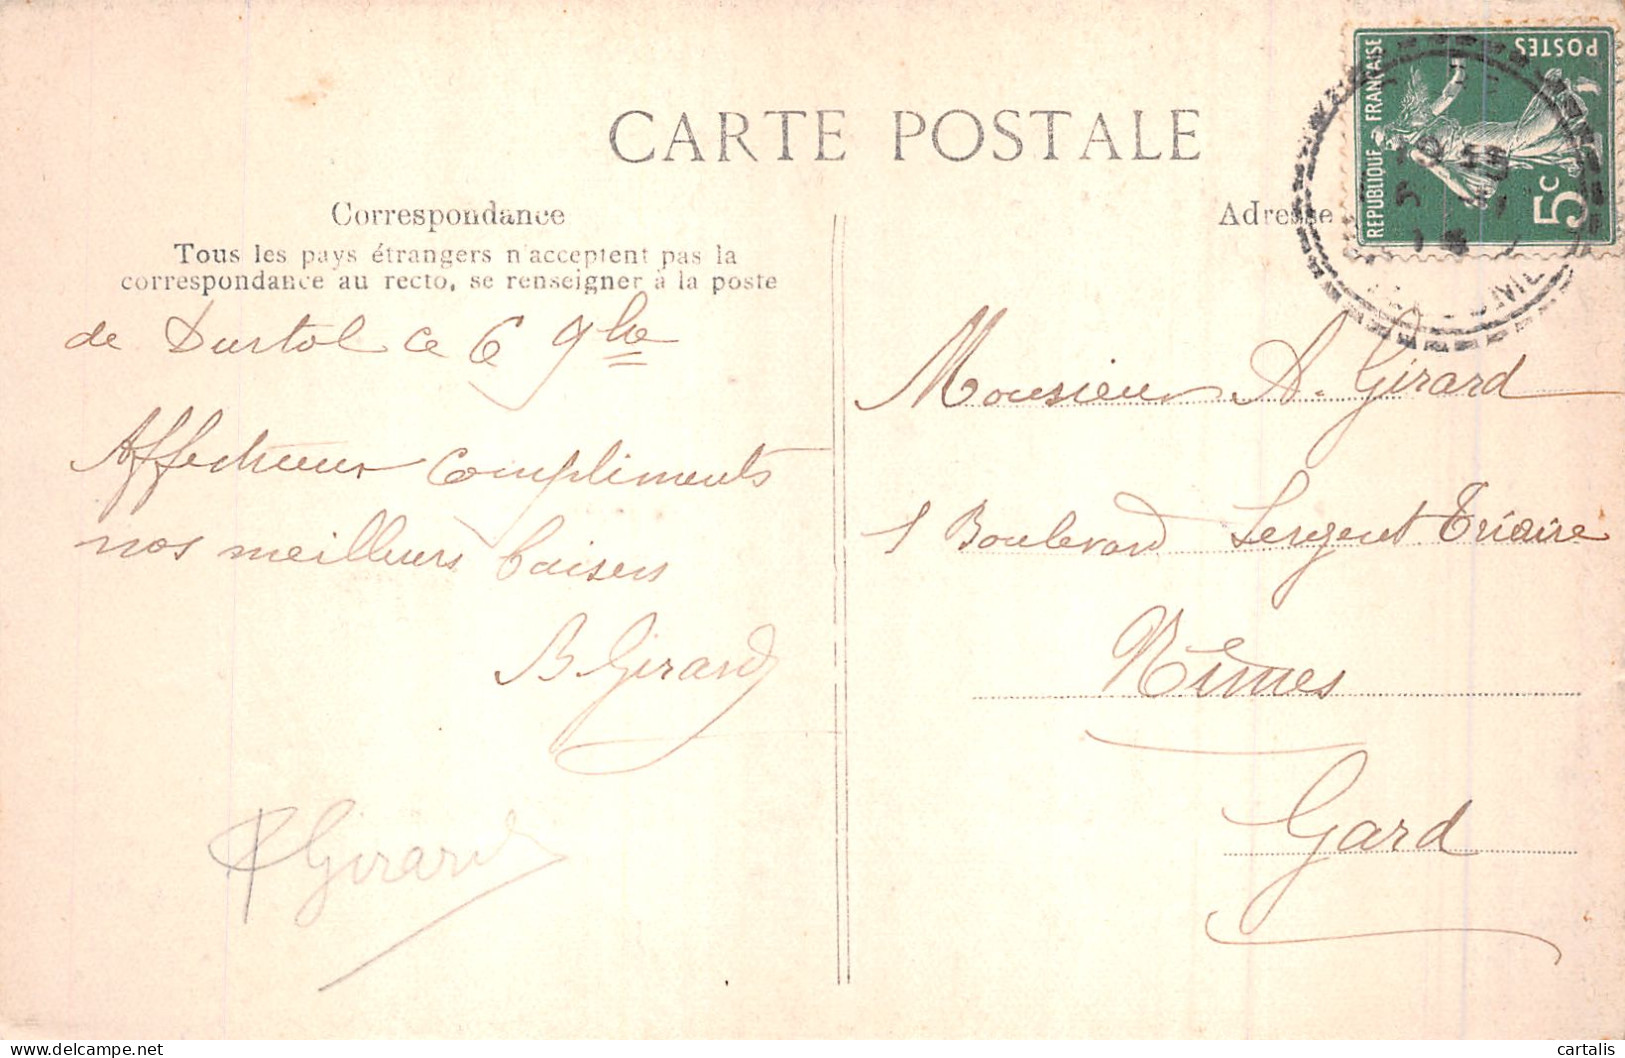 CARTE POSTALE
Correspondance
Tous les pays étrangers n'acceptent pas la
correspondance au recto, se renseigner à la poste
de Durtol ce 6 9bre
Affectueux compliments
nos meilleurs baisers
B Girard
Girard
Adresse
REPUBLIQUE FRANÇAISE
POSTES
5c
Monsieur A. Girard
1 Boulevard Sergent Triaire
Nîmes
Gard
cartalis